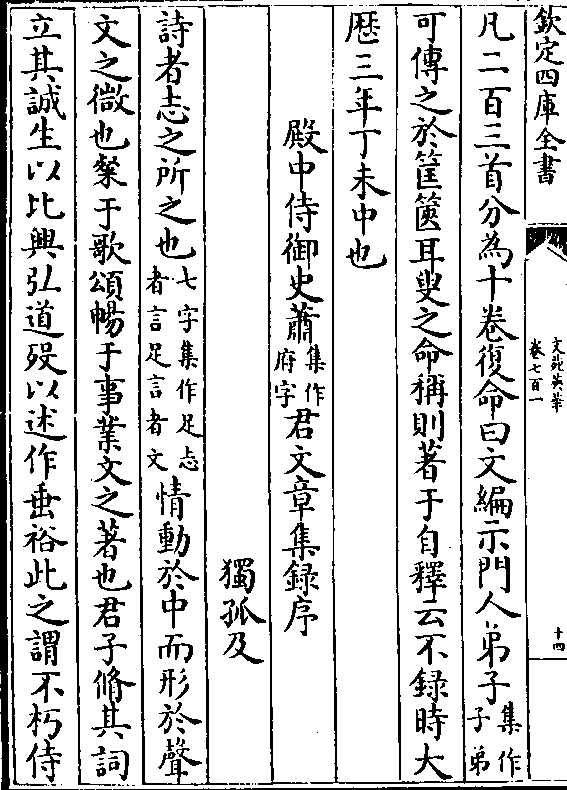 欽定四庫全書
文苑英華
卷七百一
十四
凡二百三首分為十卷復命曰文編示門人弟子集作子弟
可傳之於筐篋耳叟之命稱則著于自釋云不錄時大
歴三年丁未中也
殿中侍御史蕭集作府字君文章集錄序
獨孤及
詩者志之所之也七字集作足志者言足言者文情動於中而形於聲
文之微也粲于歌頌暢于事業文之著也君子脩其詞
立其誠生以比興弘道歿以述作垂裕此之謂不朽侍